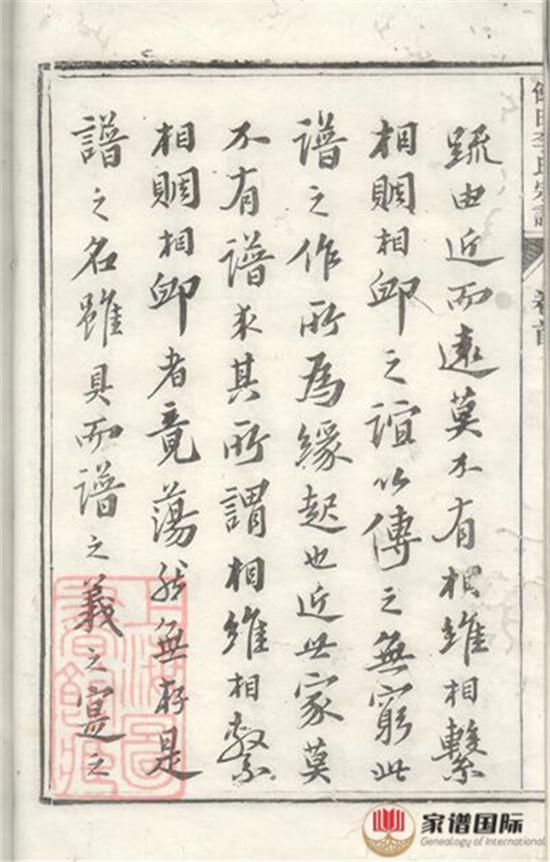 田李氏宗譜 卷首
疏由近而遠莫不有相維相繫
相賙相卹之誼以傳之無窮此
譜之作所為緣起也近世家莫
不有譜求其所謂相維相繫
相賙相卹者竟蕩然無存是
譜之名雖具而譜之義之寔之
上海圖
書館藏
家谱国际
Genealogy of International